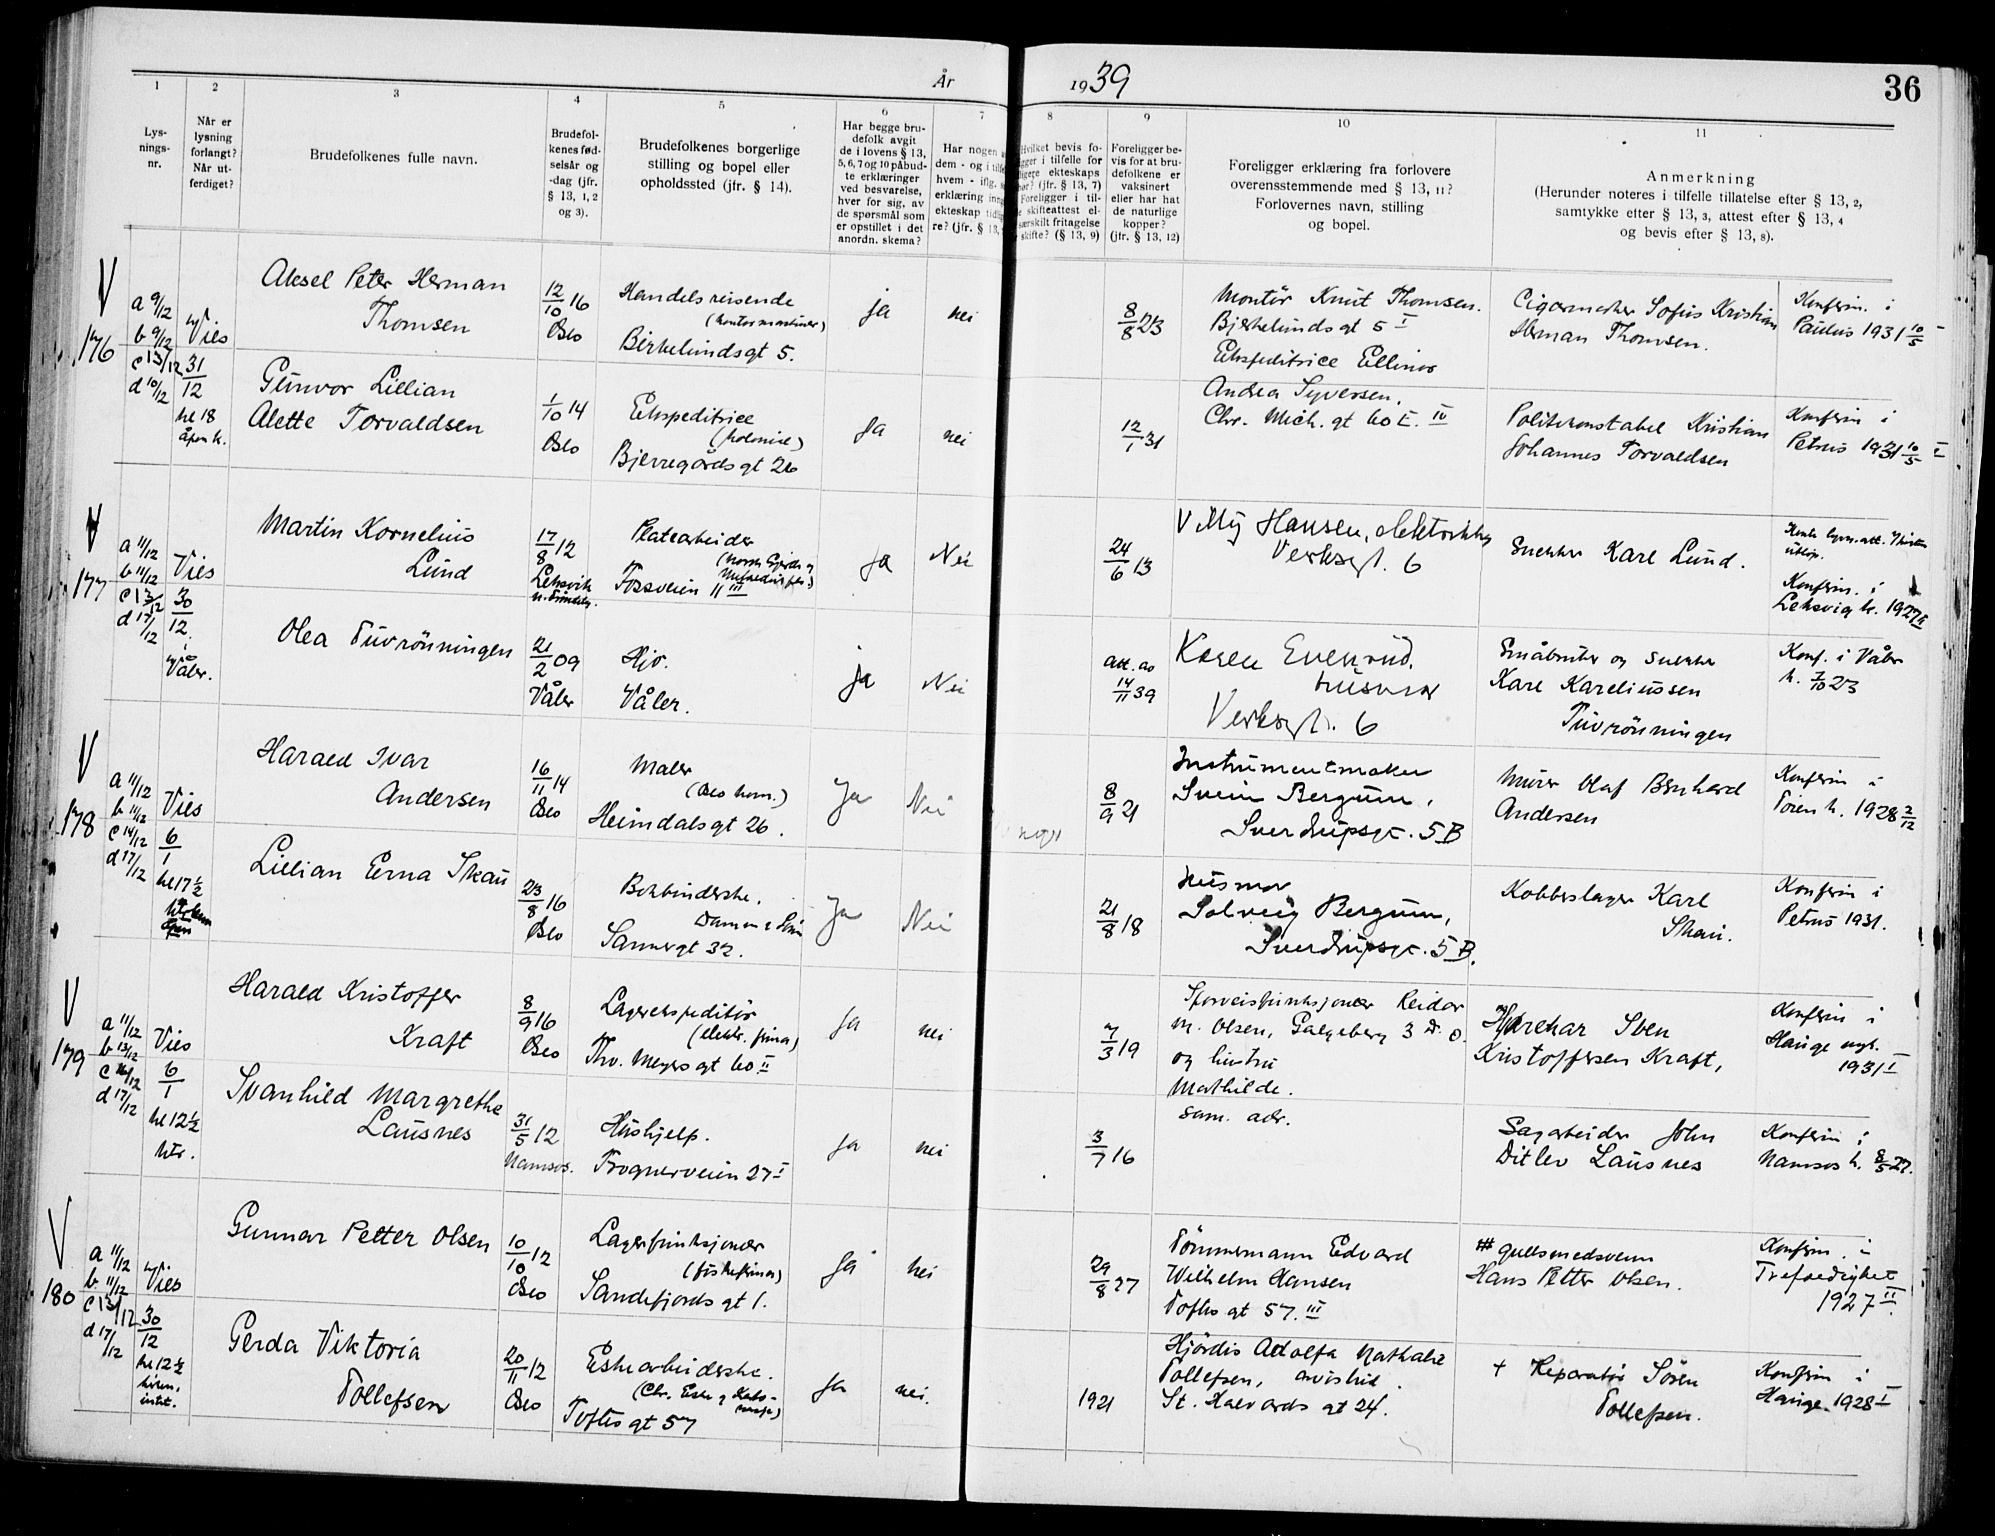 År
1939
36
1
2
3
4
5
6
7
8
9
10
11
Lys-
nings-
nr.
Når er
lysning
forlangt?
Når ut-
ferdiget?
Brudefolkenes fulle navn.
Brudefol-
kenes fød-
selsår og
-dag (jfr.
§ 13, 1, 2
og 3).
Brudefolkenes borgerlige
stilling og bopel eller
opholdssted (jfr. § 14).
Har begge bru-
defolk avgit
de i lovens § 13,
5, 6, 7 og 10 påbud-
te erklæringer
ved besvarelse,
hver for sig, av
de spørsmål som
er opstillet i det
anordn. skema?
Har nogen
dem - og i
hvem - iflg.
erklæring
ekteskap
re? (jfr. § 13,
Hvilket bevis fo-
i tilfelle for
ekteskaps
(jfr. § 13, 7)
Foreligger i til-
skifteattest el-
særskilt fritagelse
skifte? (§ 13, 9)
Foreligger be-
vis for at bru-
defolkene er
vaksinert
eller har hat
de naturlige
kopper?
(jfr. § 13, 12)
Foreligger erklæring fra forlovere
overensstemmende med § 13, 11?
Forlovernes navn, stilling
og bopel.
Anmerkning
(Herunder noteres i tilfelle tillatelse efter § 13, 2,
samtykke efter § 13, 3, attest efter § 13, 4
og bevis efter § 13, 8).
V
176
a 9/12
b 9/12
c 13/12
d 10/12
Vies
31/12
kl 18
åpen k.
Aksel Peter Herman
Thomsen
12/10 16
Oslo
Handelsreisende
(kontormaskiner)
Birkelundsgt 5.
ja
nei
8/8 23
Montör Knut Thomsen.
Bjerkelundsgt 5 I
Ekspeditrice Ellinor
Andrea Syversen,
Chr. Mich. gt 60 E. IV
Cigarmaker Sofus Kristian
Herman Thomsen.
Konfirm. i
Paulus 1931 10/5 I
Gunvor Lillian
Alette Torvaldsen
1/10 14
Oslo
Ekspeditrice
(kolonial)
Bjerregårdsgt 26
Ja
nei
12/1 31
Politikonstabel Kristian
Johannes Torvaldsen
Konfirm i
Petrus 1931 10/5 I
V
177
a 11/12
b 11/12
c 13/12
d 17/12
Vies
30/12.
i
Våler.
Martin Kornelius
Lund
17/8 12
Leksvik
Platearbeider
Fossveien 11 III
Ja
Nei
24/6 13
Villy Hansen, elektriker
Verksgt. 6
Snekker Karl Lund.
Konfirm. i
Leksvig k. 1927 II
Olea Tuvrönningen
21/2 09
Våler
Hjv.
Våler.
ja
Nei
att. av
14/11 39
Karen Evenrud,
husmor
Verksgt. 6
Småbruker og snekker
Karl Kareliussen
Tuvrönningen
Konf. i Våler
k. 7/10 23
V
178
a 11/12
b 11/12
c 14/12
d 17/12
Vies
6/1
kl 17½
Harald Ivar
Andersen
16/11 14
Oslo
Maler
(Oslo kom.)
Heimdalsgt 26.
Ja
Nei
8/9 21
Instrumentmaker
Svein Bergum,
Sverdrupsgt. 5 B
Murer Olaf Bernhard
Andersen
Konfirm i
Töien k. 1928 2/12
Lillian Erna Skau
23/8 16
Oslo
Bokbinderske.
Damm & Sön
Sannergt 32.
Ja
Nei
21/8 18
Husmor
Solveig Bergum,
Sverdrupsgt. 5 B.
Kobberslager Karl
Skau.
Konfirm i
Petrus 1931.
V
179
a 11/12
b 13/12
c 16/12
d 17/12
Vies
6/1
kl 12½
Harald Kristoffer
Kraft
8/9 16
Oslo
Lagerekspeditör
(elektr. firma)
Thv. Meyers gt 60 II
Ja
nei
7/3 19
Sporveisfunksjonær Reidar
M. Olsen, Galgeberg 3 D. O.
og hustru
Mathilde.
sam. adr.
Sven
Kristoffersen Kraft,
Konfirm i
Hauge
1931 I
Svanhild Margrethe
Lausnes
31/5 12
Namsos.
Hushjelp.
Frognerveien 27 I
Ja
nei
3/7 16
Sagarbeider John
Ditlev Lausnes
Konfirm i
Namsos k. 8/5 27.
V
180
a 11/12
b 11/12
c 13/12
d 17/12
Vies
30/12
kl 12½
Gunnar Petter Olsen
10/10 12
Oslo
Lagerfunksjonær
(fiskefirma)
Sandefjords gt 1.
Ja
nei
29/8 27
Tömmermann Edvard
Wilhelm Hansen
Toftes gt 57. III
gullsmedsvenn
Hans Petter Olsen.
Konfirm. i
Trefoldighet
1927 II.
Gerda Viktoria
Tollefsen
20/11 12
Oslo
Eskearbeiderske.
Toftes gt 57
Ja
nei.
1921
Hjördis Adolfa Nathalie
Tollefsen, avisbud.
St. Halvards gt 24.
+ Reparatör Sören
Tollefsen.
Konfirm i
Hauge. 1928 I